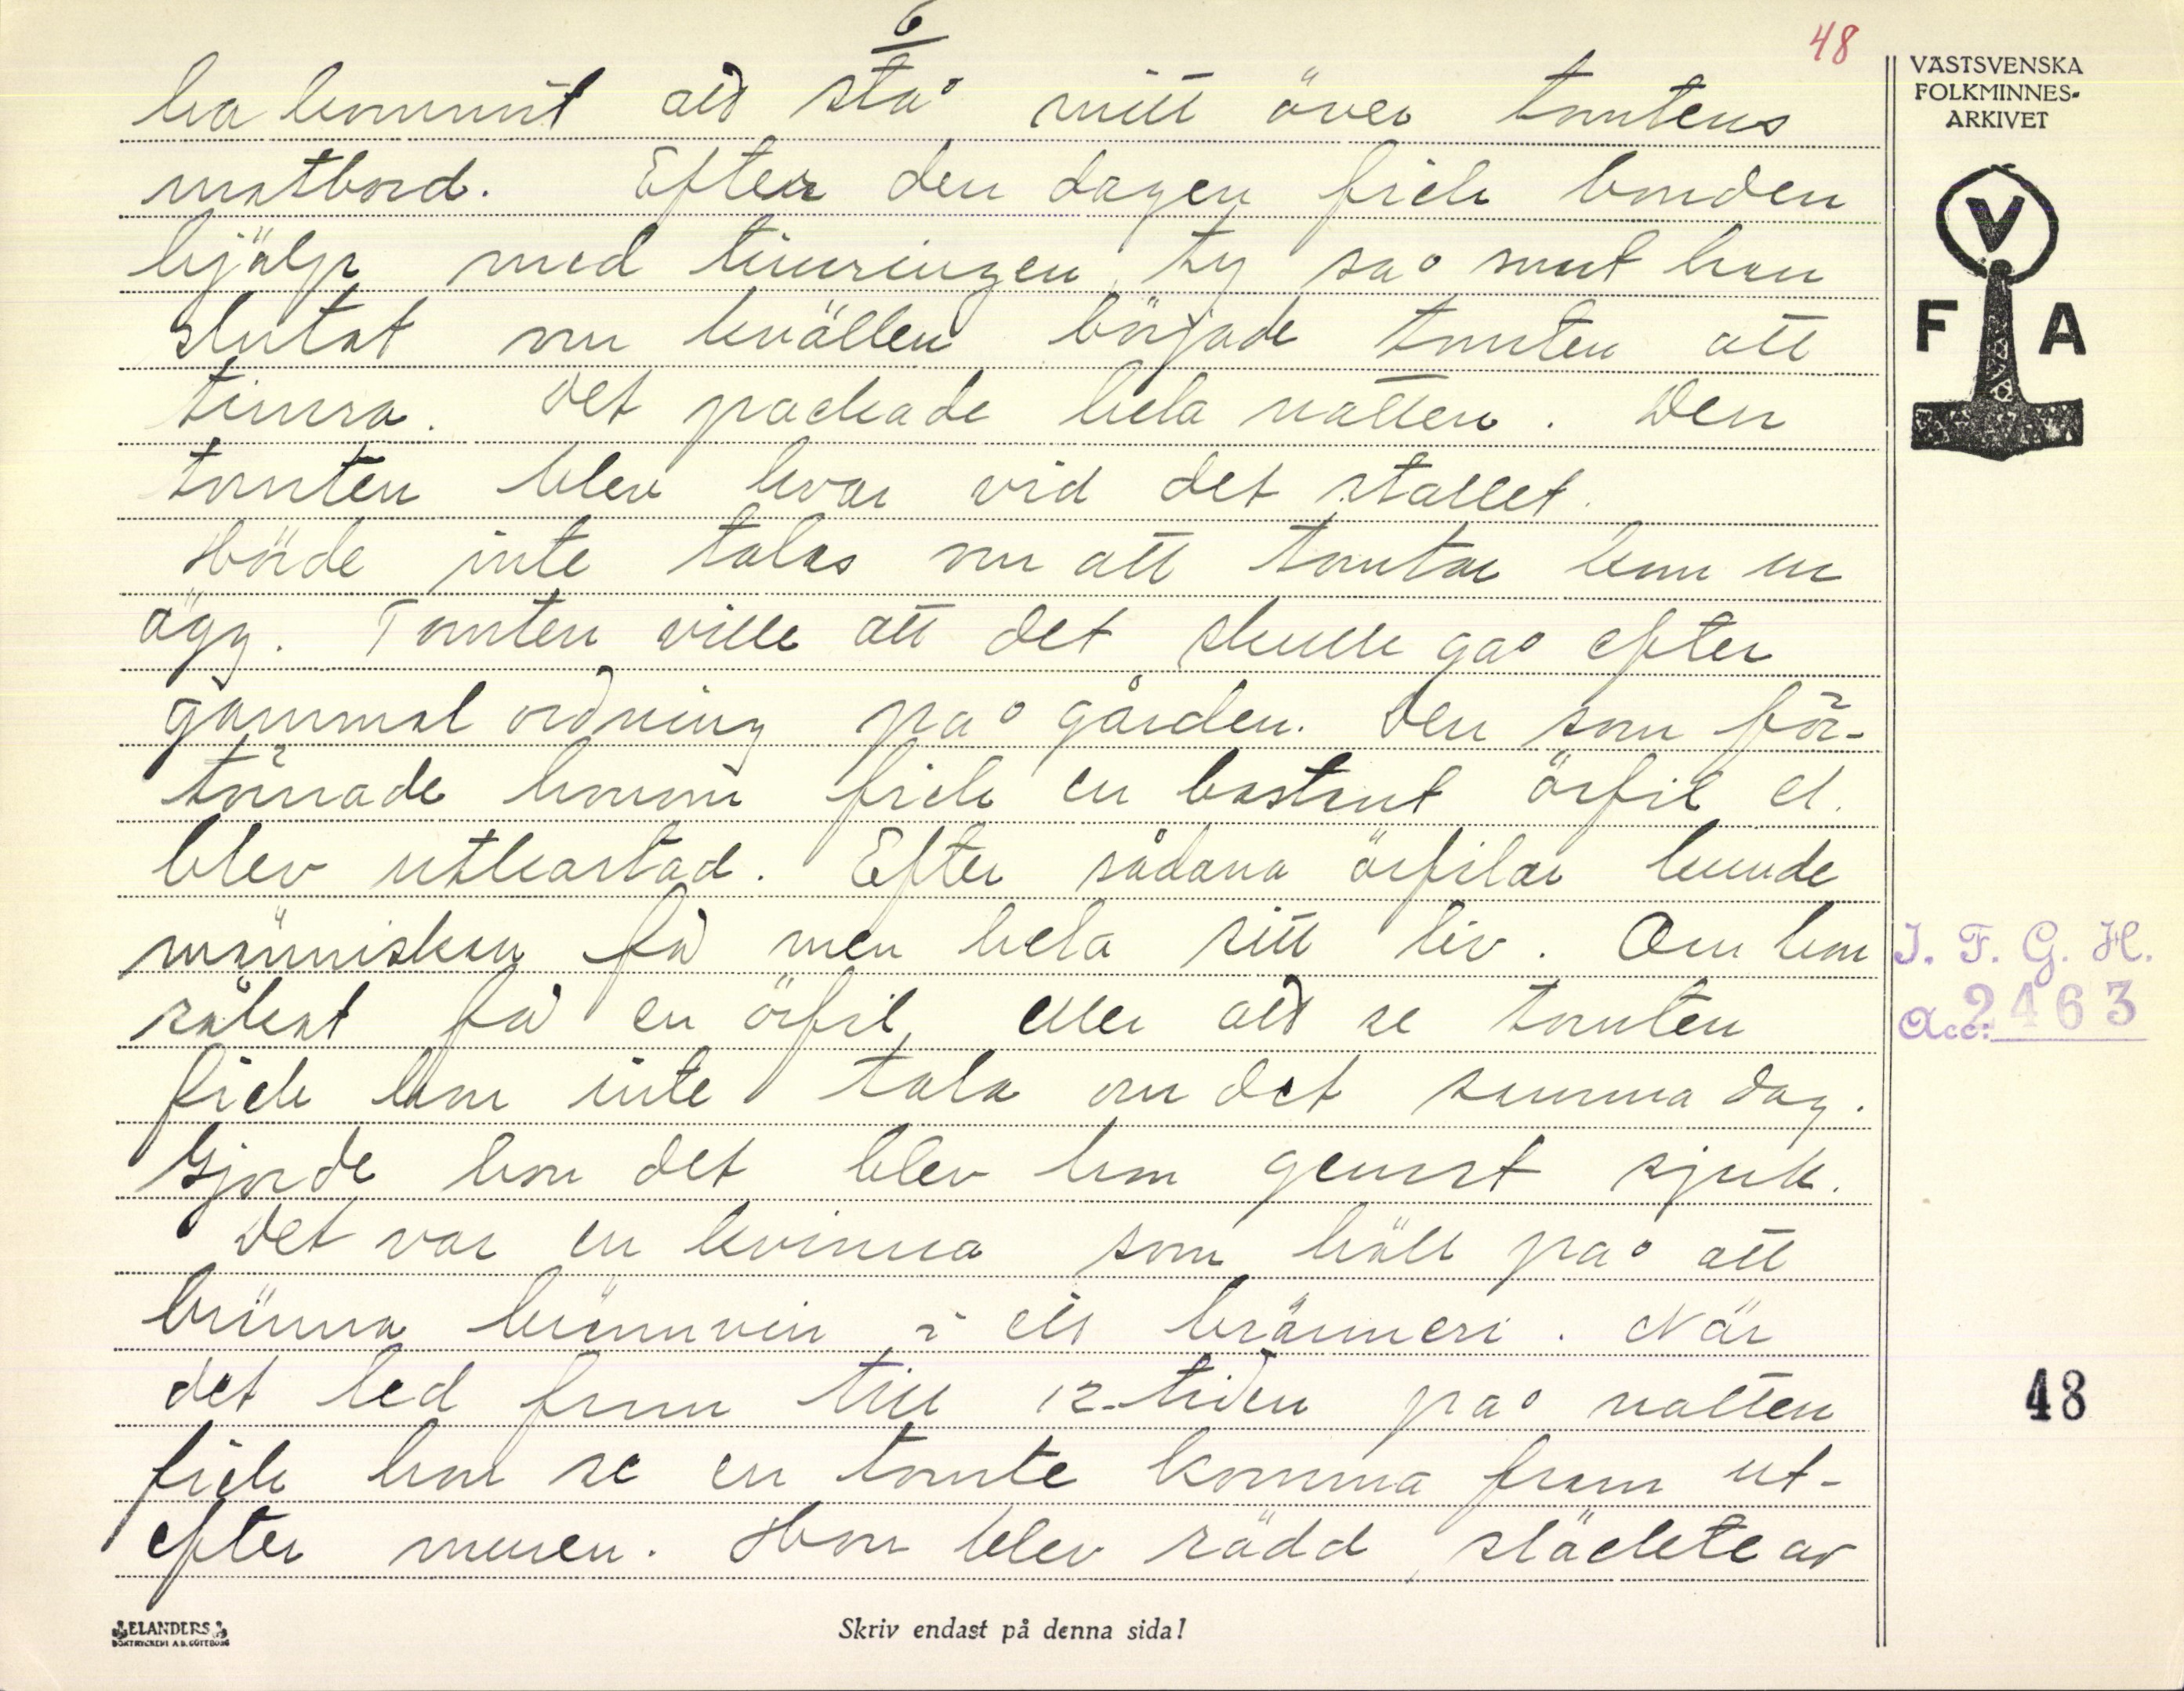 6
48
ha kommit att stå mitt över tomtens
matbord. Efter den dagen fick bonden
hjälp med timringen, ty så snart han
slutat om kvällen började tomten att
timra. Det pockade hela natten. Den
tomten blev kvar vid det stallet.
Hörde inte talas om att tomtar kom ur
ägg. Tomten ville att det skulle gå efter
gammal ordning på gården. Den som för-
törnade honom fick en bastant örfil el.
blev utkastad. Efter sådana örfilar kunde
människan få men hela sitt liv. Om hon
råkat få en örfil, eller att se tomten
fick hon inte tala om det samma dag.
Gjorde hon det blev hon genast sjuk.
Det var en kvinna som höll på att
bränna brännvin i ett bränneri. När
det led fram till 12-tiden på natten
fick hon se en tomte komma fram ut-
efter muren. Hon blev rädd, släckte av
VÄSTSVENSKA
FOLKMINNES-
ARKIVET
V
F A
I. F. G. H.
Acc: 2463
48
ELANDERS
BOKTRYCKERI A.B. GÖTEBORG
Skriv endast på denna sida!